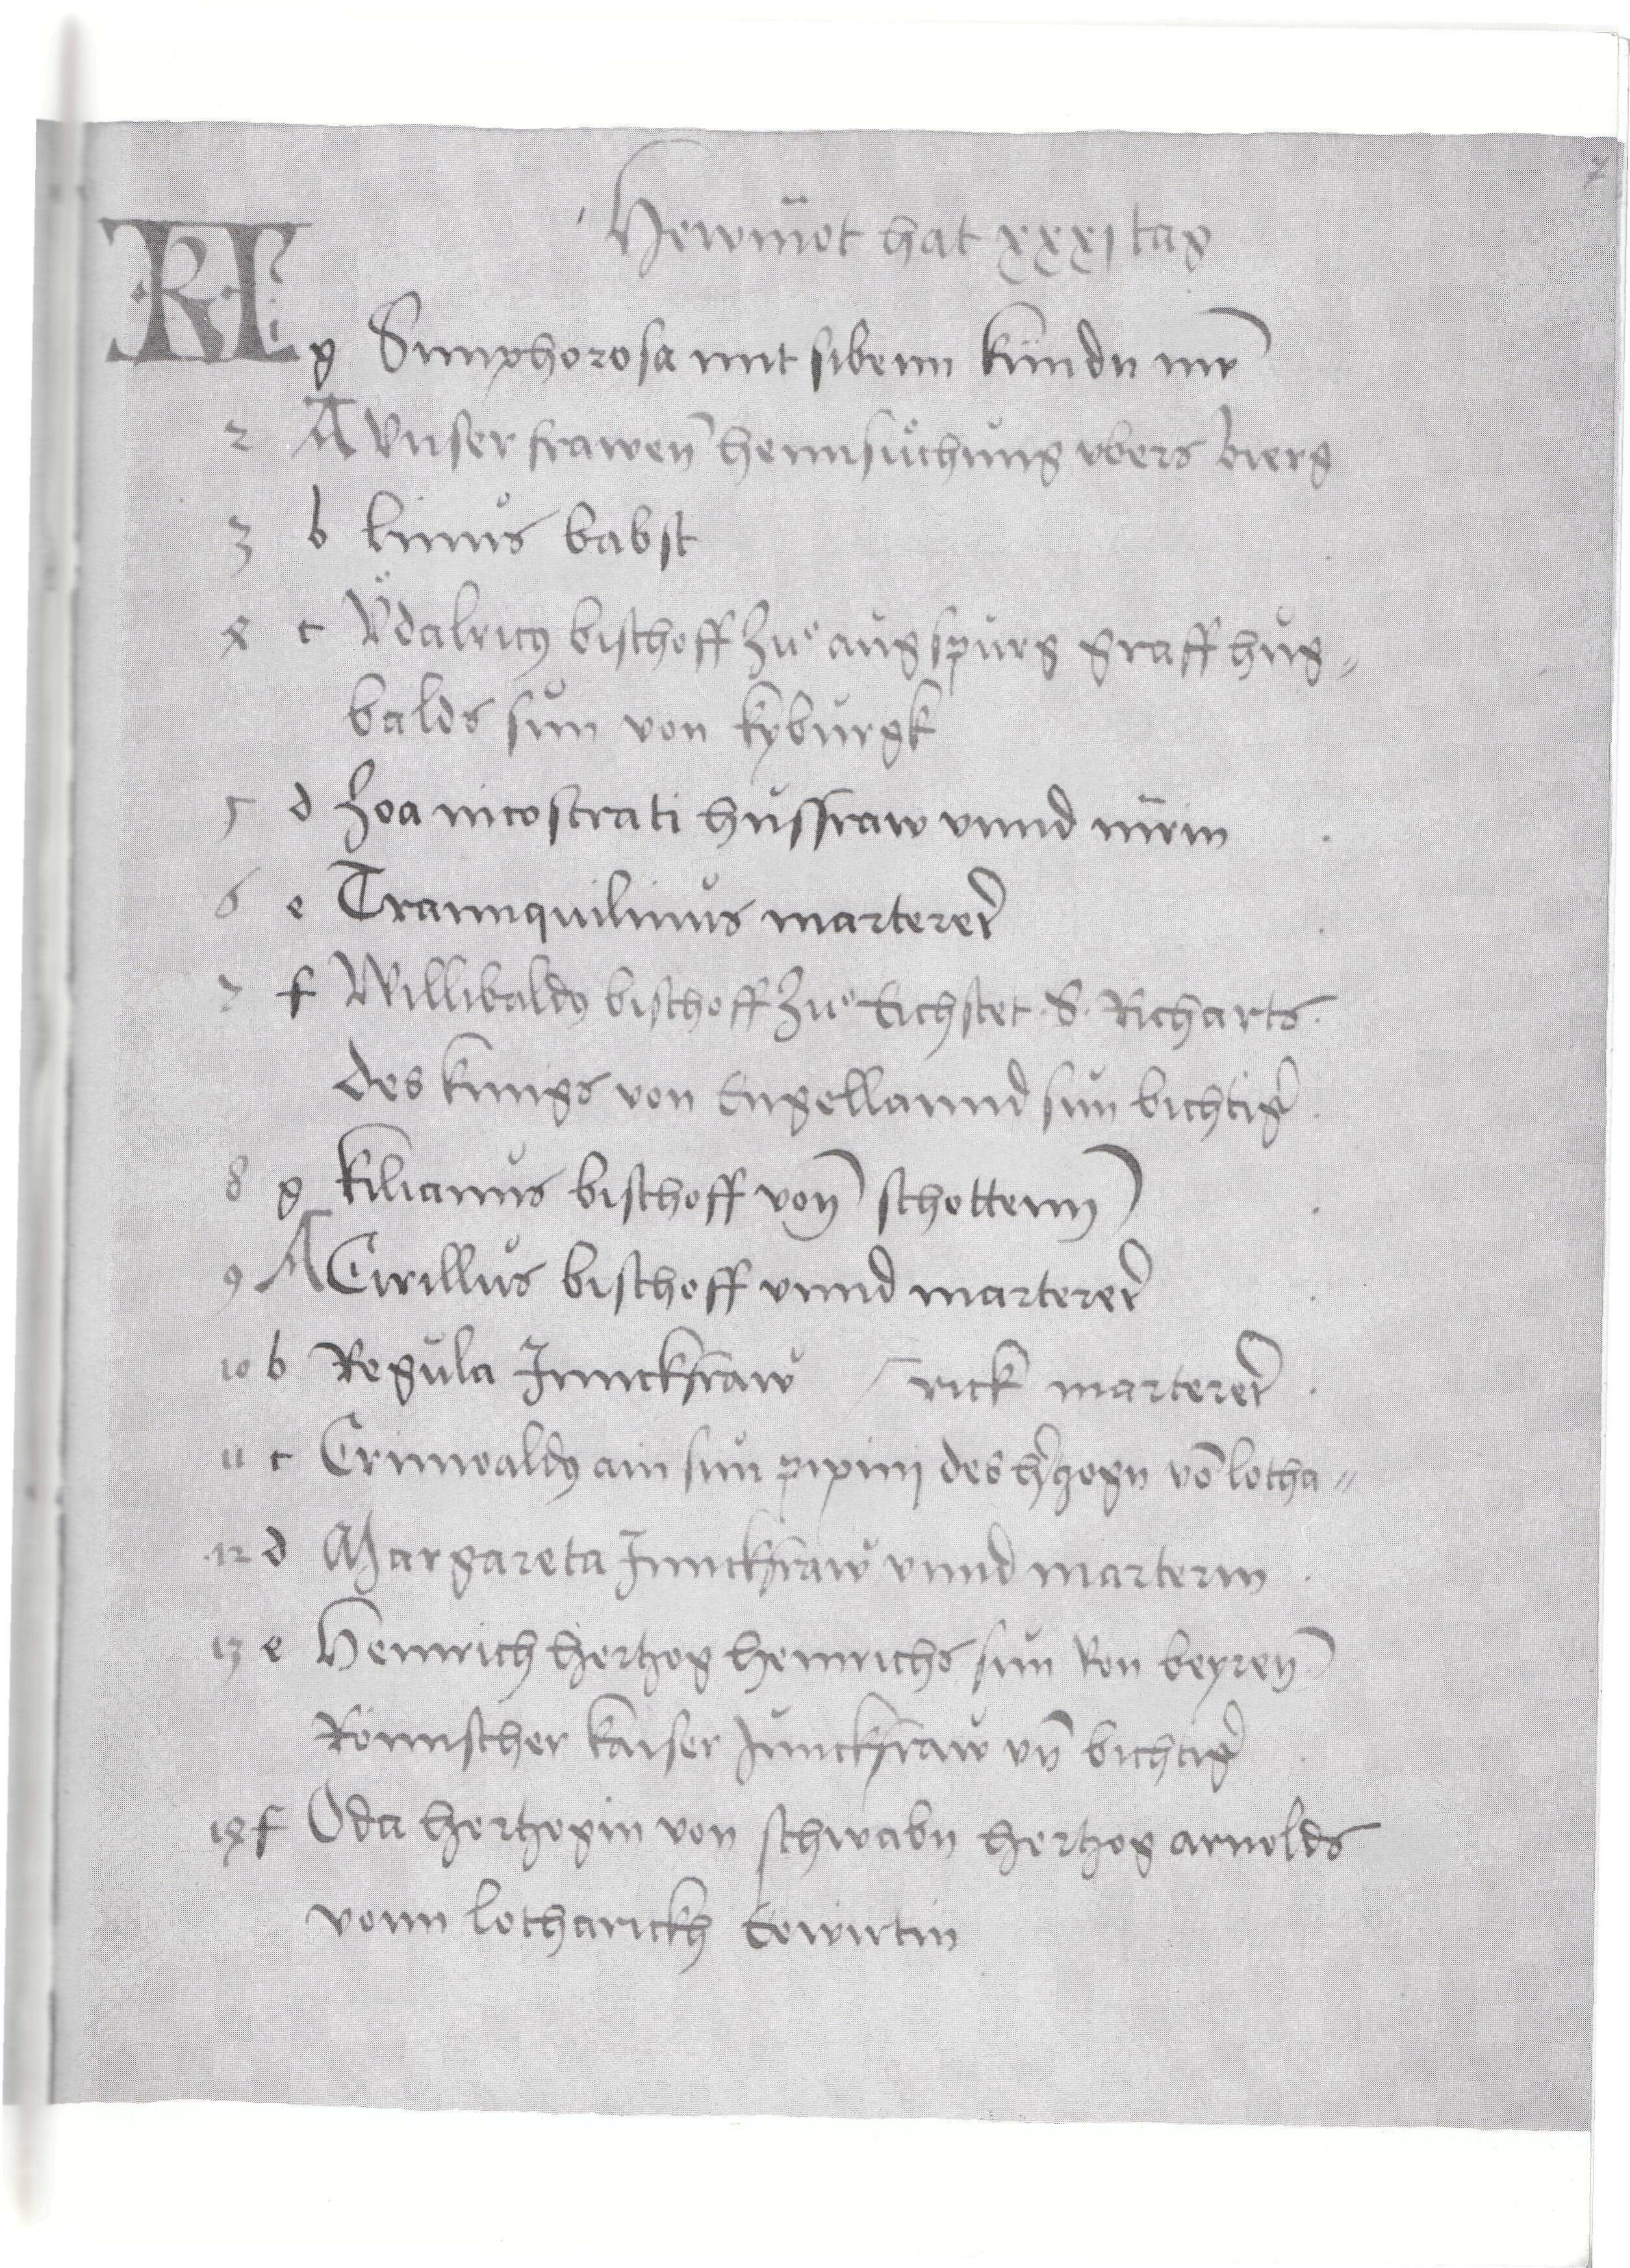 7
Hewmot hat xxxi tag
KL g Simphorosa mit sibenn kindn mr̃
2 A Vnser frawen̄ heimsůchung vbers bierg
3 b Linus babst
4 c Vͦdalricꝰ bischoff Zuͦ augspurg graff hug⸗
balds sun von kyburgk
5 d Zoa nicostrati husfraw vnnd m̄rin
6 e Trannquilinus marterer̄
7 f Willibaldꝰ bischoff Zuͦ Eichstet .S. Richarts
des kunigs von Engellannd sun bichtigr̄
8 g Kilianus bischoff von̄ schottenn
9 A Cirillus bischoff vnnd marterer̄
10 b Regula Junckfraw / rick marterer̄
11 c Grimoaldꝰ ain sun pipinj des h̄tzogn vō lotha⸗
12 d Margareta Junckfraw vnnd marterin
13 e Heinrich hertzog heinrichs sun von beyren̄
Römischer kaiser Junckfraw vn̄ bichtigr̄
14 f Oda hertzogin von schwabn hertzog arnolds
vonn lotharickh Eewirtin